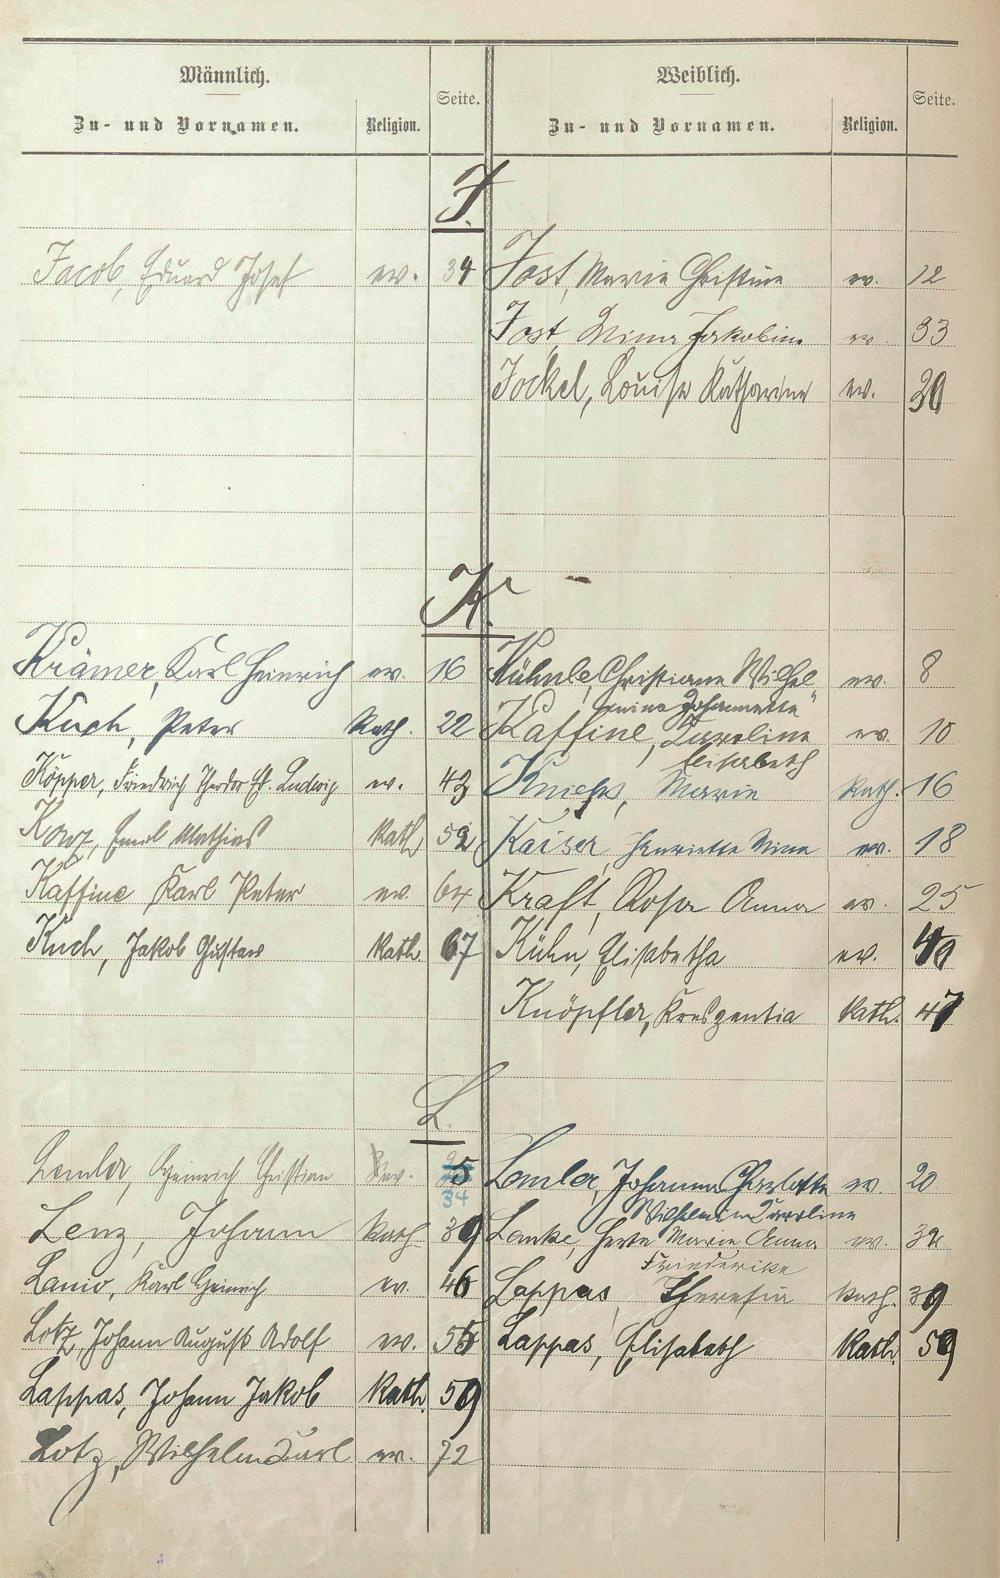 Männlich.
Zu- und Vornamen. Religion. Seite.
Weiblich.
Zu- und Vornamen. Religion. Seite.
J.
Jacob, Eduard Josef ev. 34
Jost, Marie Christine ev. 12
Jost, Mina Jakobine ev. 33
Jockel, Louise Katharine ev. 30
K.
Krämer, Karl Heinrich ev. 16
Kuch, Peter Kath. 22
Köpper, Friedrich Theodor Ed. Ludwig ev. 43
Emil Mathias Kath. 52
Kaffine Karl Peter ev. 64
Kuch, Jakob Gustav Kath. 67
Kühnle, Christiane Wilhel ev. 8
mine Johannette"
Kaffine, Karoline ev. 10
Elisabeth
Marie Kath. 16
Kaiser, Henriette Mina ev. 18
Kraft, Rosa Anna ev. 25
Kühn, Elisabetha ev.
Knöpfler, Kreszentia Kath. 47
L.
Lemler, Heinrich Christian ev. 5
34
Lenz, Johann Kath. 39
Lanio, Karl Heinrich ev. 46
Lotz, Johann August Adolf ev.
Lappas, Johann Jakob Kath. 59
Lotz, Wilhelm Karl ev. 72
Lemler, Johanna Charlotte ev. 20
Wilhelmine Karoline
Lanke, Herta Marie Anna ev.
Friederike
Lappas, Theresia Kath. 39
Lappas, Elisabeth Kath. 59